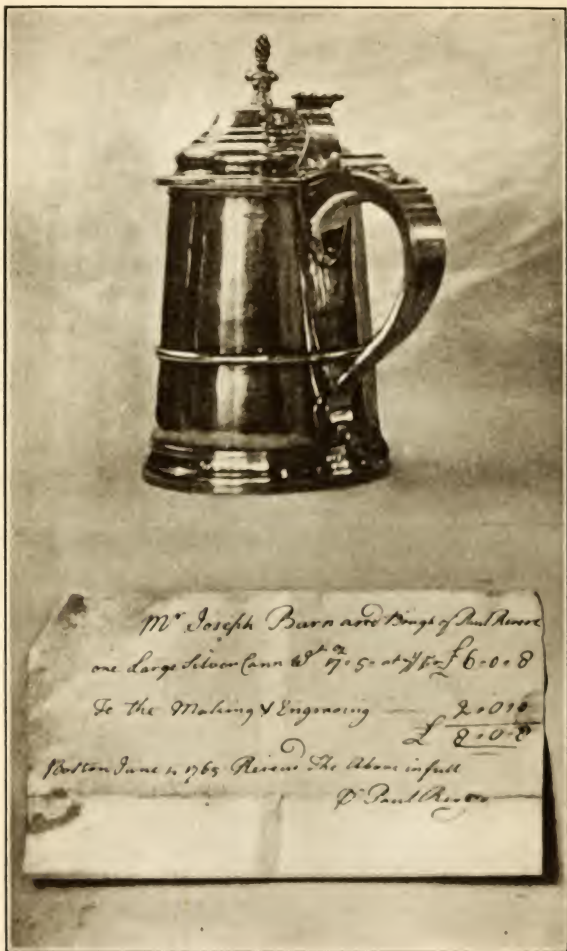 Mr Joseph Barnard Bough of Paul Revere
one Large Silver Cann Wt 17=5= at £6=0=8
To the Making & Engraving 2=0=0
£ 8=0=8
Boston June 1765 Receivd The Above in full
Paul Revere